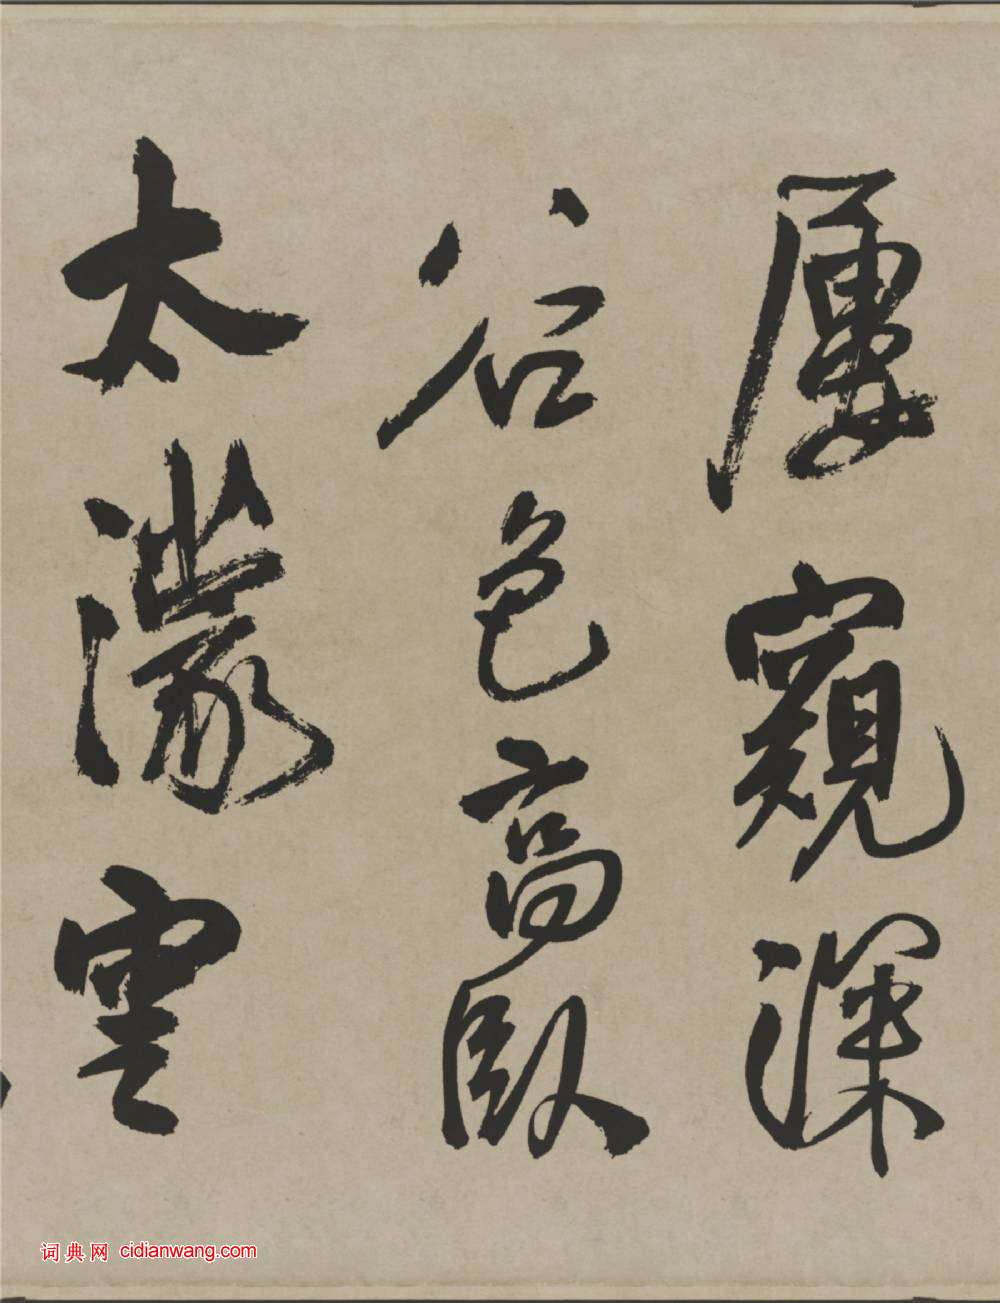 屢窺深
谷色高臥
太濛空
词典网 cidianwang.com